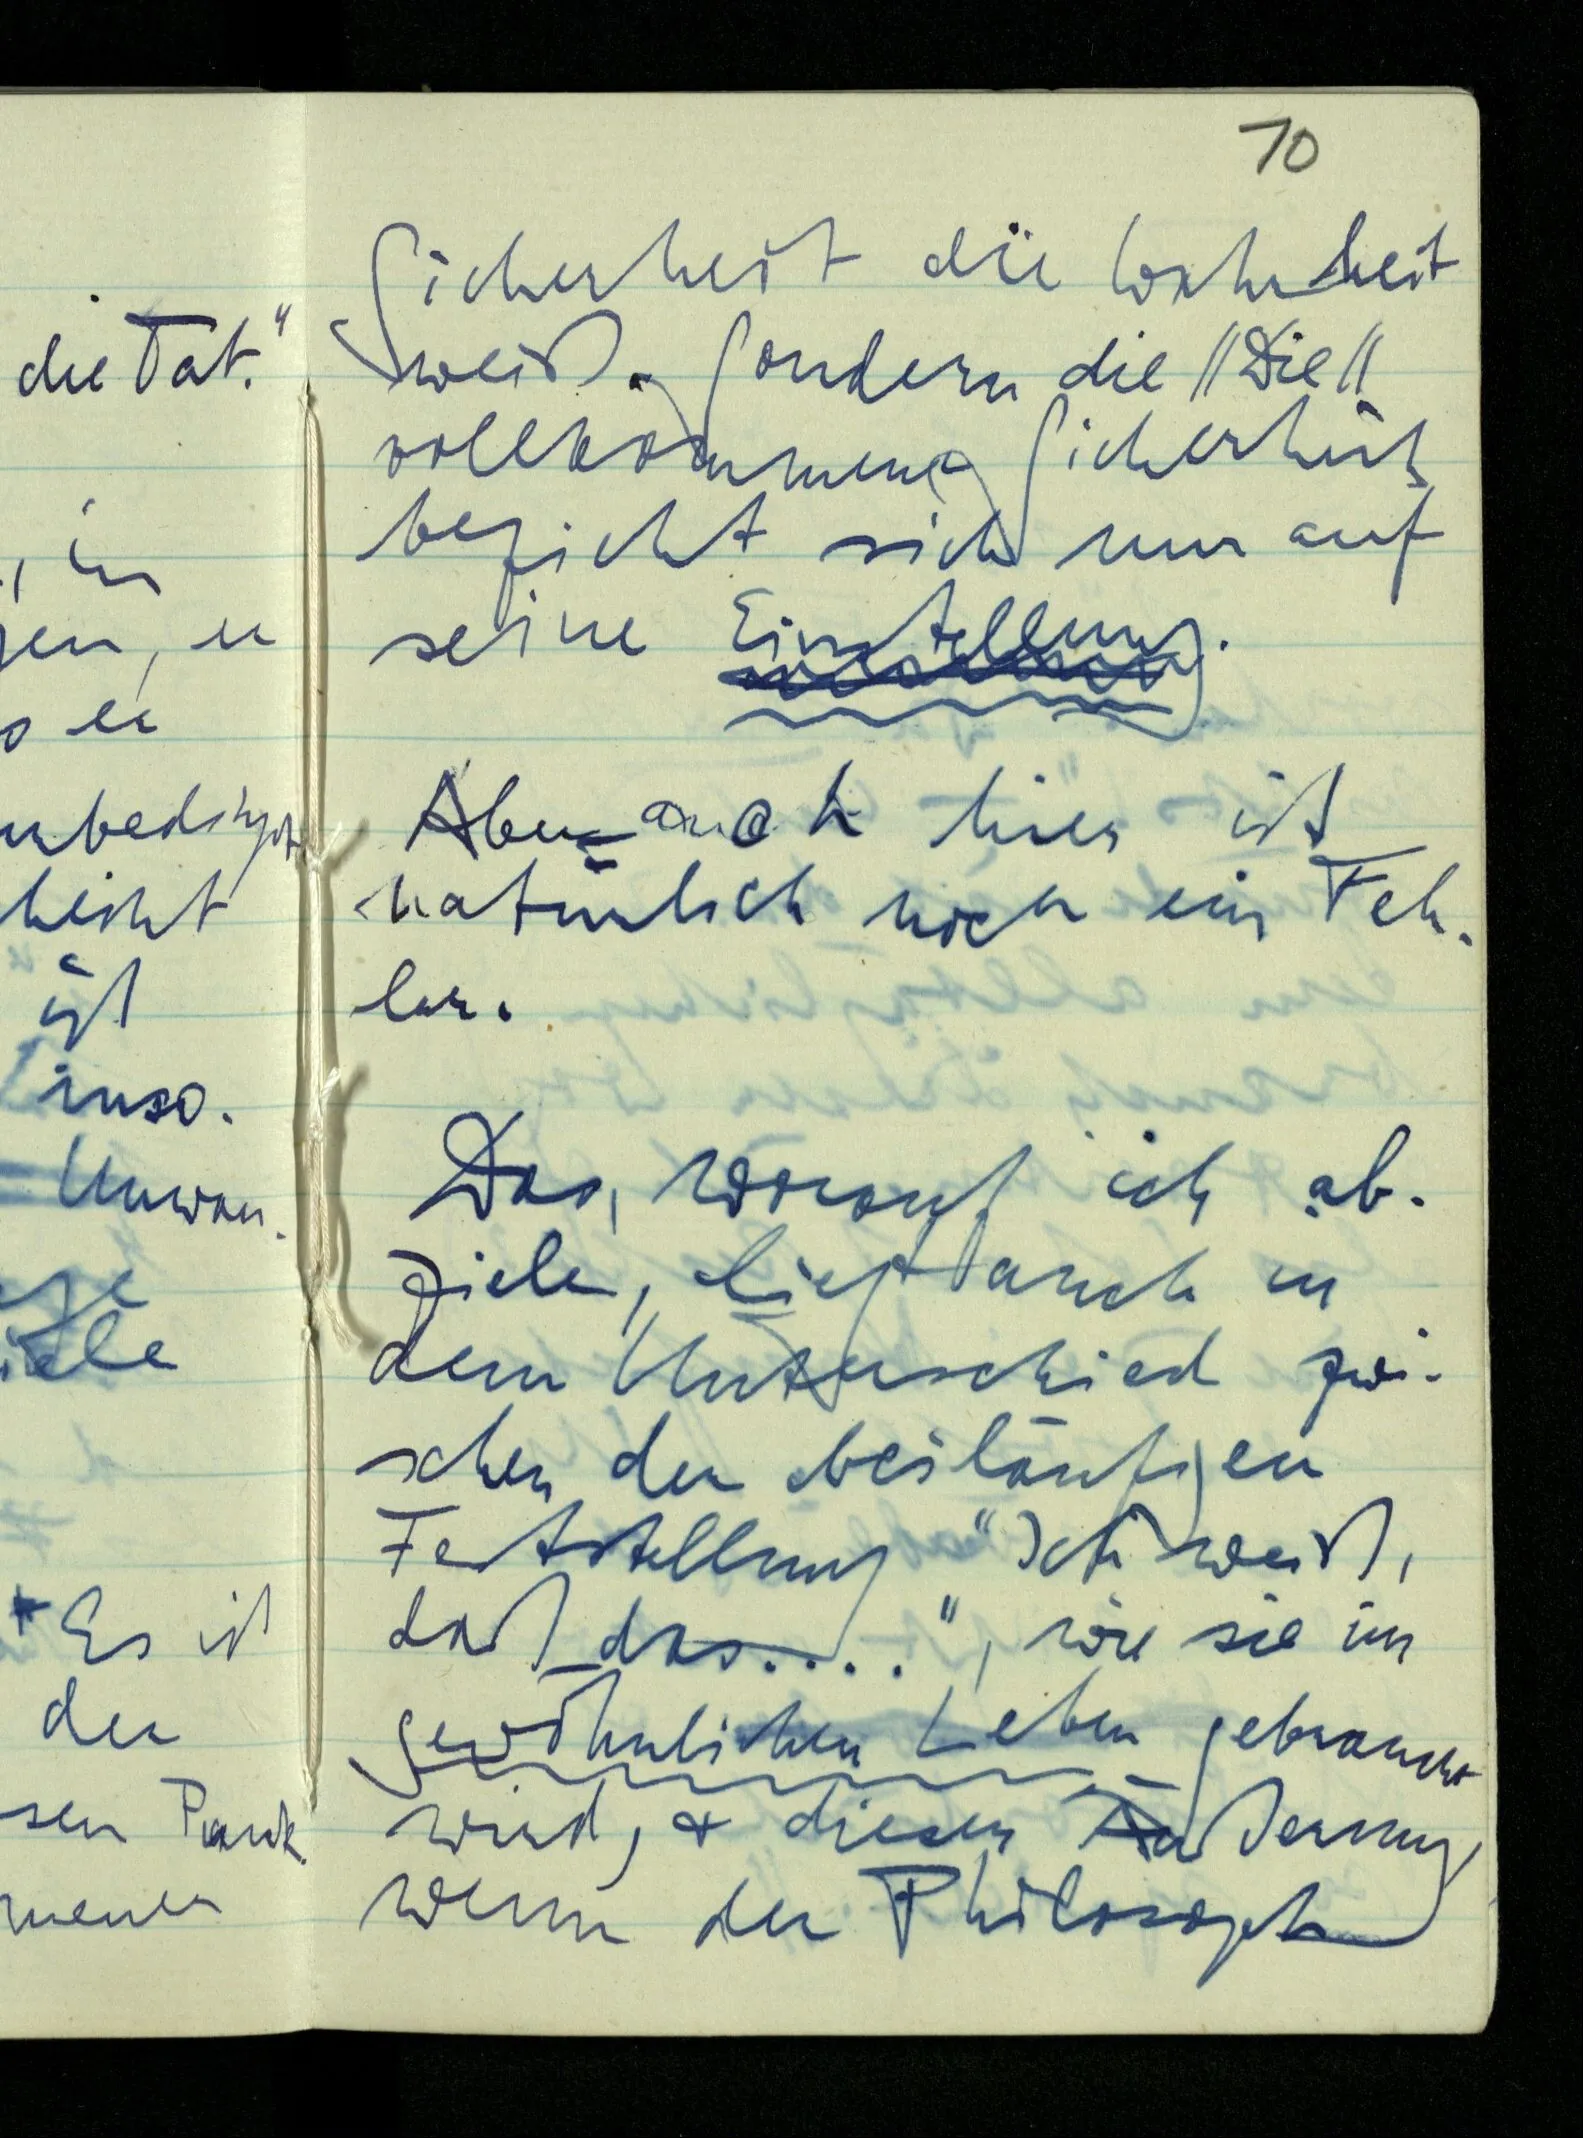 die Tat."
, in
gen, er
s er
unbedingt
heint
ist
inso-
Unwan-
ege
iele
Es ist
der
sen Punk-
mener
70
Sicherheit die Wahrheit
weiß. Sondern die //Die//
vollkommene Sicherheit
bezieht sich nur auf
seine Einstellung.
Aber auch hier ist
natürlich noch ein Feh-
ler.
Das, worauf ich ab-
ziele, liegt auch in
dem Unterschied zwi-
schen der beiläufigen
Feststellung "Ich weiß,
daß das....", wie sie im
gewöhnlichen Leben gebraucht
wird, & dieser Äußerung,
wenn der Philosoph